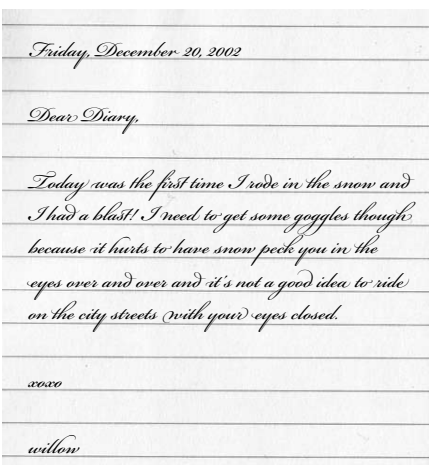 Friday, December 20, 2002
Dear Diary,
Today was the first time I rode in the snow and
I had a blast! I need to get some goggles though
because it hurts to have snow peck you in the
eyes over and over and it's not a good idea to ride
on the city streets with your eyes closed.
xoxo
willow